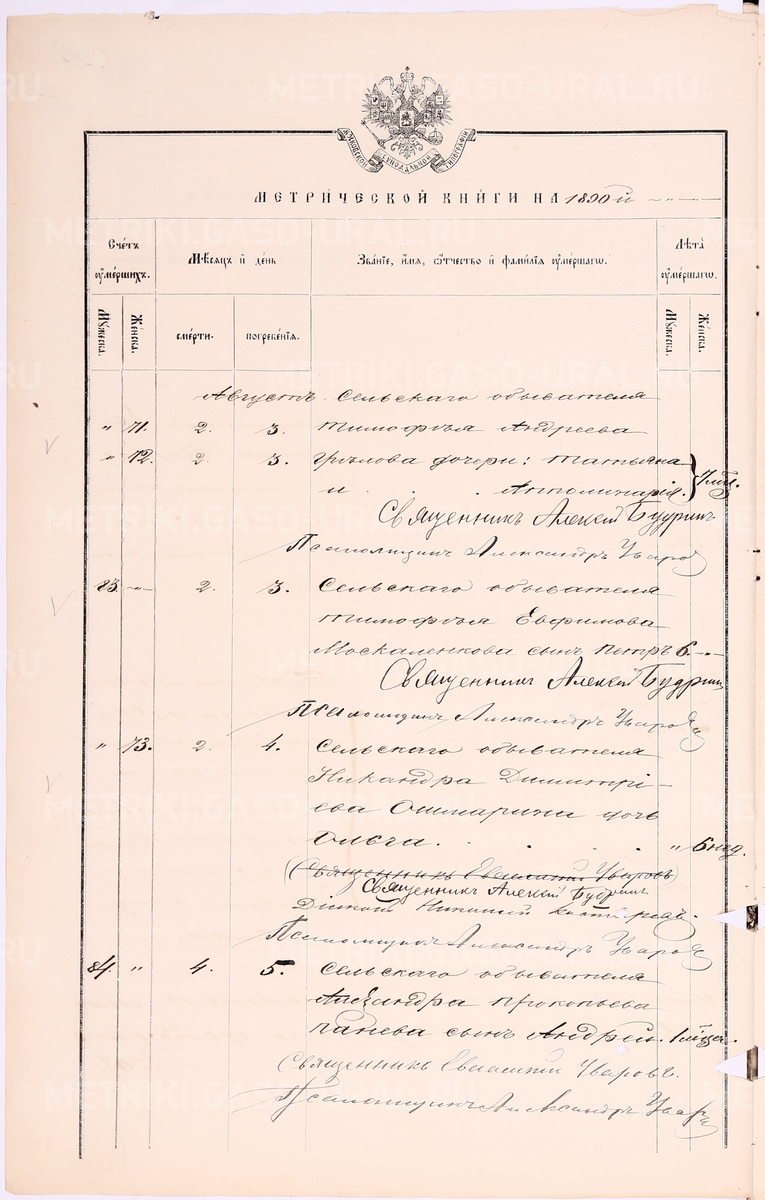 МОСКОВСКОЙ СѴНОДАЛЬНОЙ ТИПОГРАФІИ
МЕТРИ́ЧЕСКОЙ КНИ́ГИ НА 1890й
Сче́тъ ᲂу҆ме́ршихъ.
Мѣ́сяцъ и҆ де́нь
Зва́нїе, и҆́мя, ѻ҆́тчество и҆ фами́лїя ᲂу҆ме́ршагѡ.
Лѣ́та ᲂу҆ме́ршагѡ.
Мꙋ́жеска.
Же́нска.
сме́рти.
погребе́нїя.
Мꙋ́жеска.
Же́нска.
Августъ. Сельскаго обывателя
" 71. 2. 3. Тимофѣя Андреева
" 72. 2. 3. дочери: Татьяна
и . . Апполинарія.
Священникъ Алексій Будринъ
Псаломщикъ Александръ Уваровъ
83. -"- 2. 3. Сельскаго обывателя
Тимофѣя Евфимова
Москаленкова сынъ Петръ 6. -"-
Священникъ Алексій Будринъ
Псаломщикъ Александръ Уваровъ
" 73. 2. 4. Сельскаго обывателя
Никандра Димитрі-
ева Ошмарина дочь
Ольга. . . . . " 6 нед.
(Священникъ Евлампій Уваровъ)
Священникъ Алексій Будринъ
Псаломщикъ Александръ Уваровъ
84. " 4. 5. Сельскаго обывателя
Александра Прокопьева
Панева сынъ Андрей. 1
Священникъ Евлампій Уваровъ.
Псаломщикъ Александръ Уваровъ
METRIKI.GASO-URAL.RU